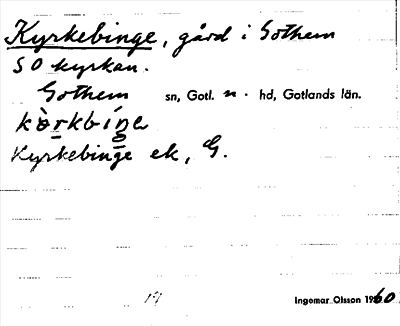 Kyrkebinge, gård i Gothem
SO kyrkan.
Gothem sn, Gotl. n. hd, Gotlands län.
Kyrkebinge ek, G.
17
Ingemar Olsson 1960